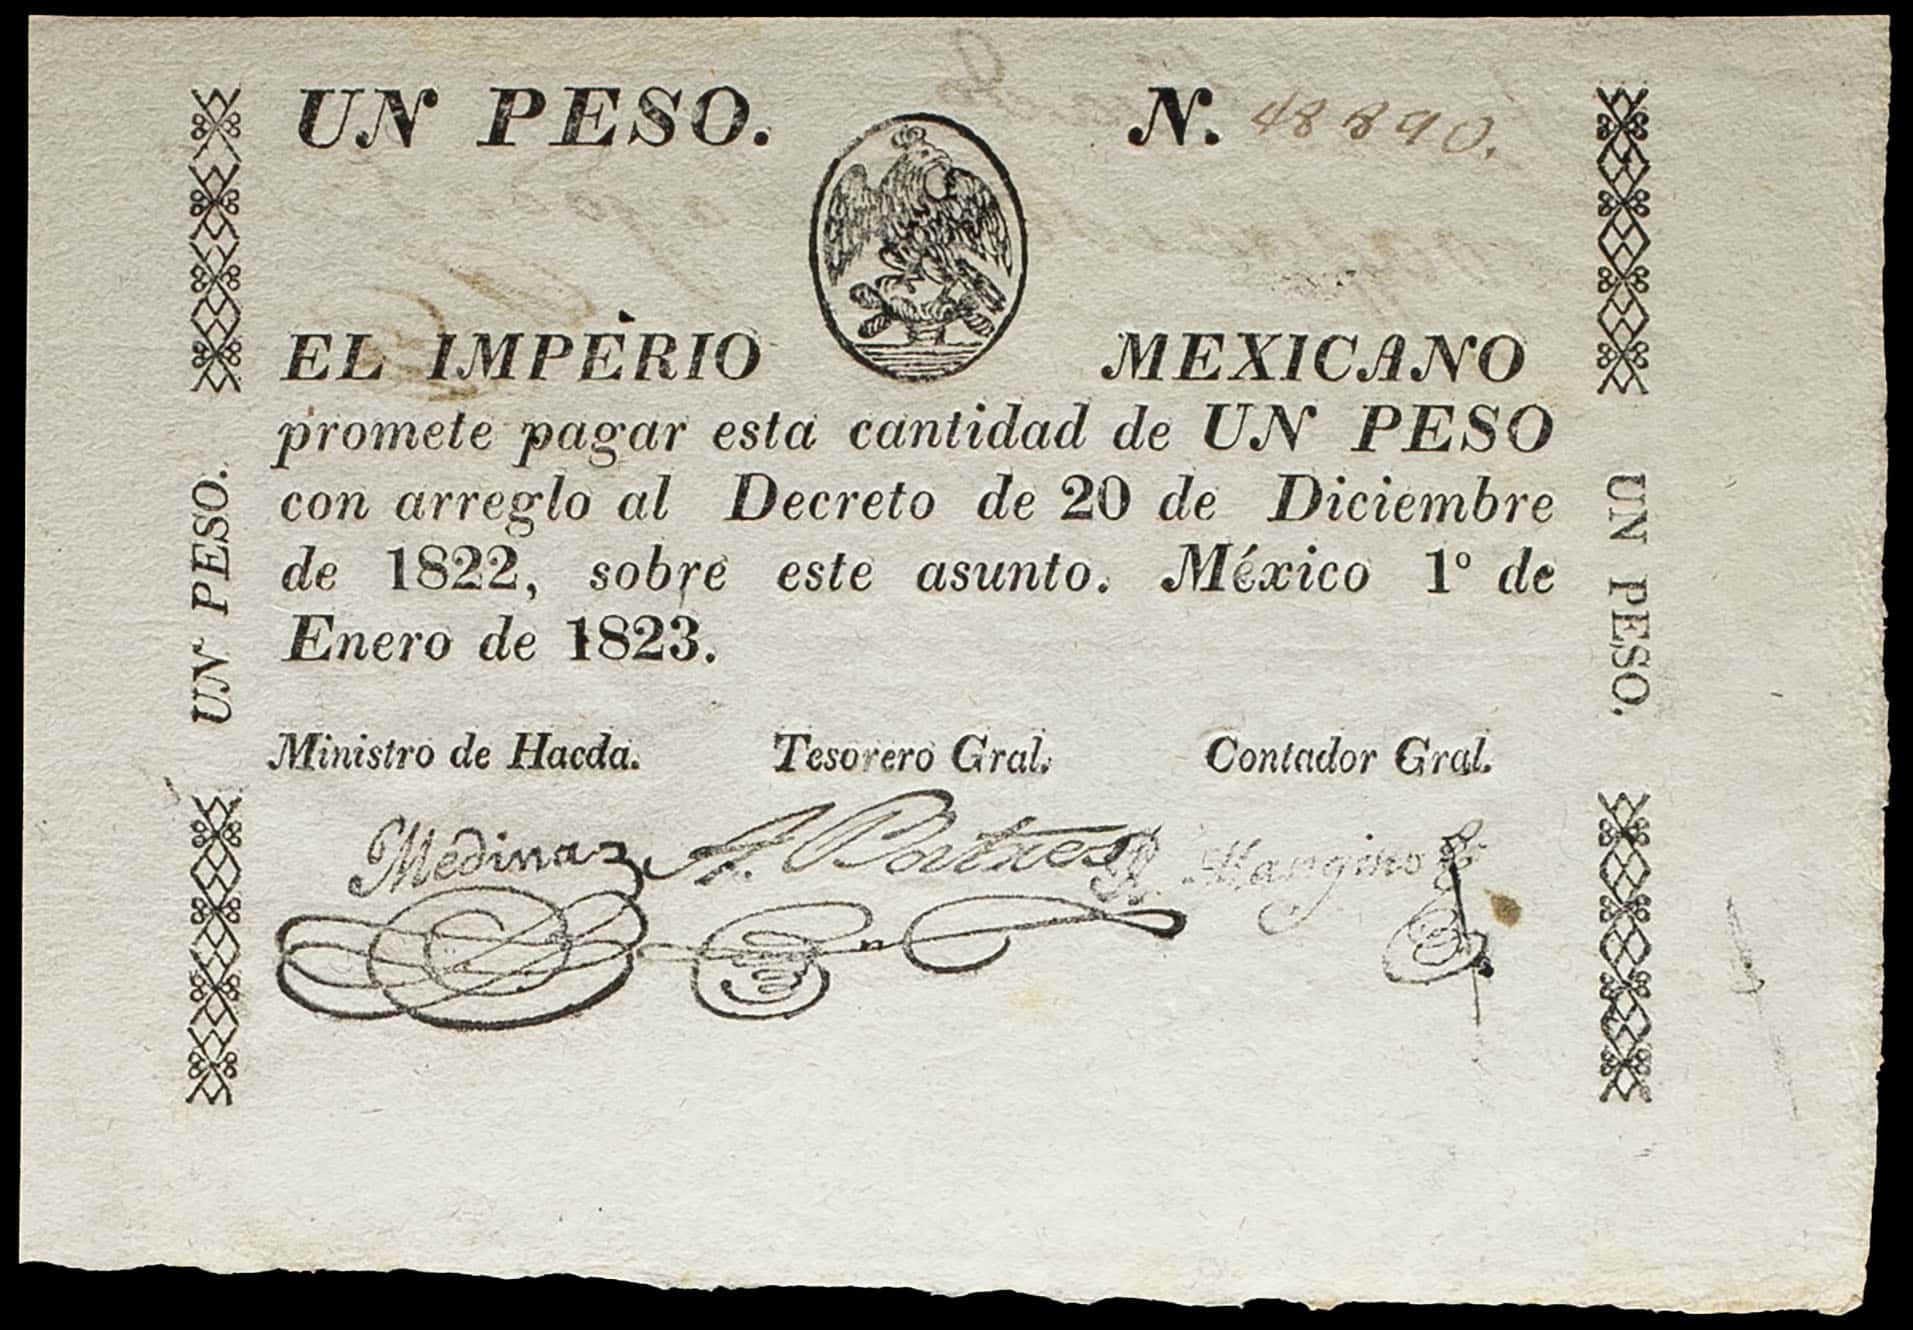 UN PESO. N. 48890.
EL IMPERIO MEXICANO
promete pagar esta cantidad de UN PESO
con arreglo al Decreto de 20 de Diciembre
de 1822, sobre este asunto. México 1º de
Enero de 1823.
Ministro de Hacda. Tesorero Gral. Contador Gral.
Medina A. Batres R. Mangino
UN PESO.
UN PESO.